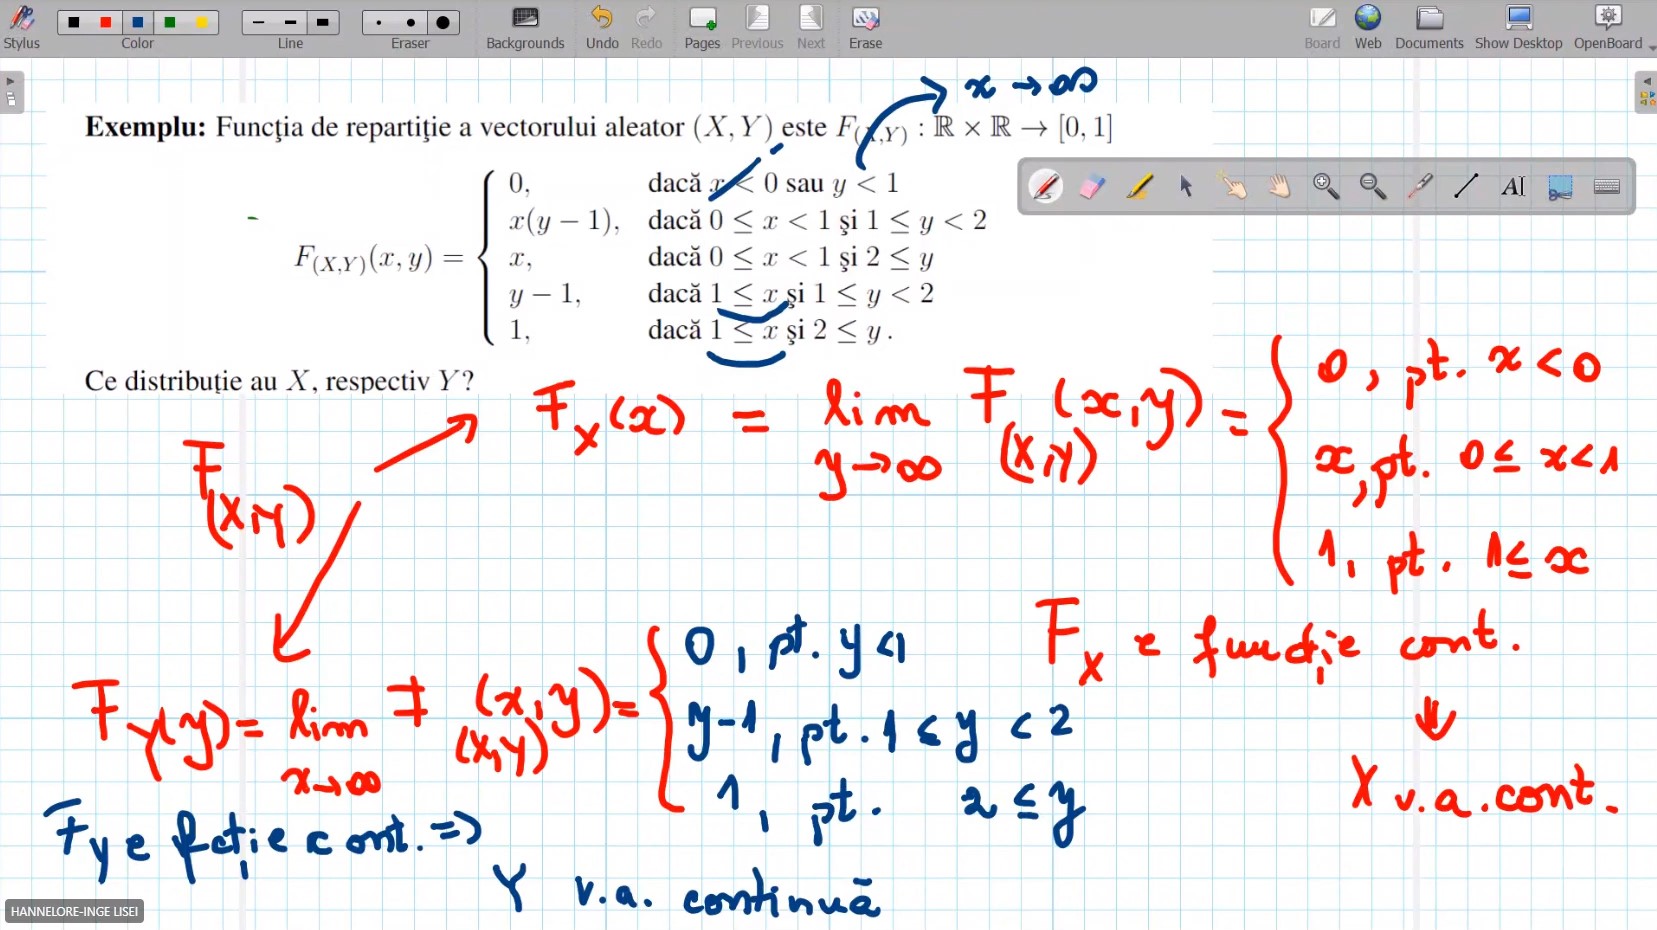 Stylus
Color
Line
Eraser
Backgrounds
Undo
Redo
Pages
Previous
Next
Erase
Board
Web
Documents
Show Desktop
OpenBoard
x → ∞
Exemplu: Funcţia de repartiţie a vectorului aleator (X, Y) este F(X,Y) : ℝ × ℝ → [0, 1]
0, dacă x < 0 sau y < 1
x(y − 1), dacă 0 ≤ x < 1 şi 1 ≤ y < 2
F(X,Y)(x, y) = x, dacă 0 ≤ x < 1 şi 2 ≤ y
y − 1, dacă 1 ≤ x şi 1 ≤ y < 2
1, dacă 1 ≤ x şi 2 ≤ y.
Ce distribuţie au X, respectiv Y?
F(X,Y)
F_X(x) = lim y→∞ F(X,Y)(x,y) =
0, pt. x < 0
x, pt. 0 ≤ x < 1
1, pt. 1 ≤ x
F_X e funcție cont.
⇓
X v.a. cont.
F_Y(y) = lim x→∞ F(X,Y)(x,y) =
0, pt. y < 1
y-1, pt. 1 ≤ y < 2
1, pt. 2 ≤ y
F_Y e fcție cont. =>
Y v.a. continuă
HANNELORE-INGE LISEI